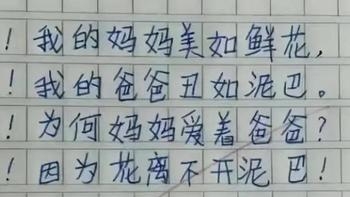 ！我的妈妈美如鲜花，
！我的爸爸丑如泥巴。
！为何妈妈爱着爸爸？
！因为花离不开泥巴！